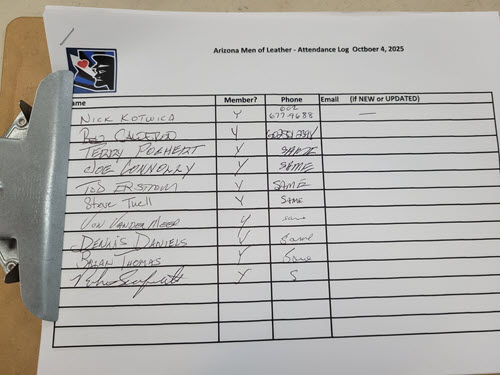 Arizona Men of Leather - Attendance Log Octboer 4, 2025
ame Member? Phone Email (if NEW or UPDATED)
NICK KOTWICA Y 602 677-9688 —
Y
TERRY Y SAME
JOE CONNOLLY Y SAME
TOD Y SAME
Steve Tuell Y SAME
VON VANDER MEER Y same
DENNIS DANIELS Y Same
BRIAN THOMAS Y Same
Y S